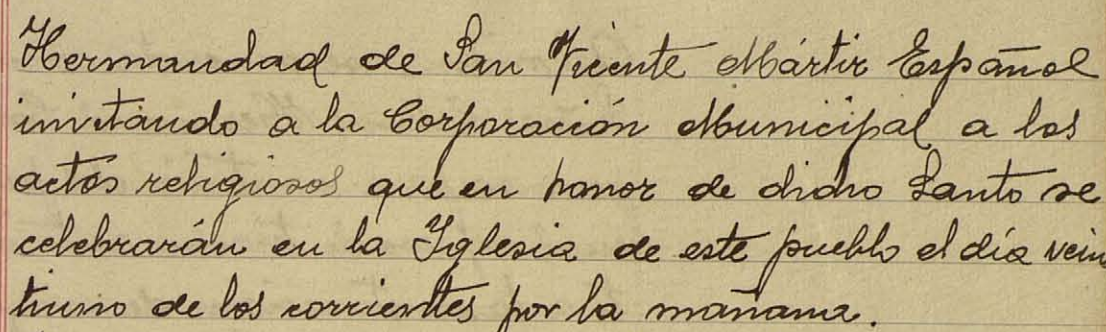 Hermandad de San Vicente Mártir Español
invitando a la Corporación Municipal a los
actos religiosos que en honor de dicho Santo se
celebrarán en la Iglesia de este pueblo el día vein
tiuno de los corrientes por la mañana.